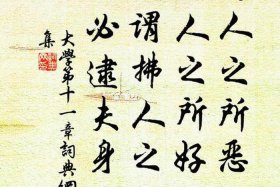 人之所恶
人之所好
谓拂人之
必逮夫身
大學第十一章詞典網
集